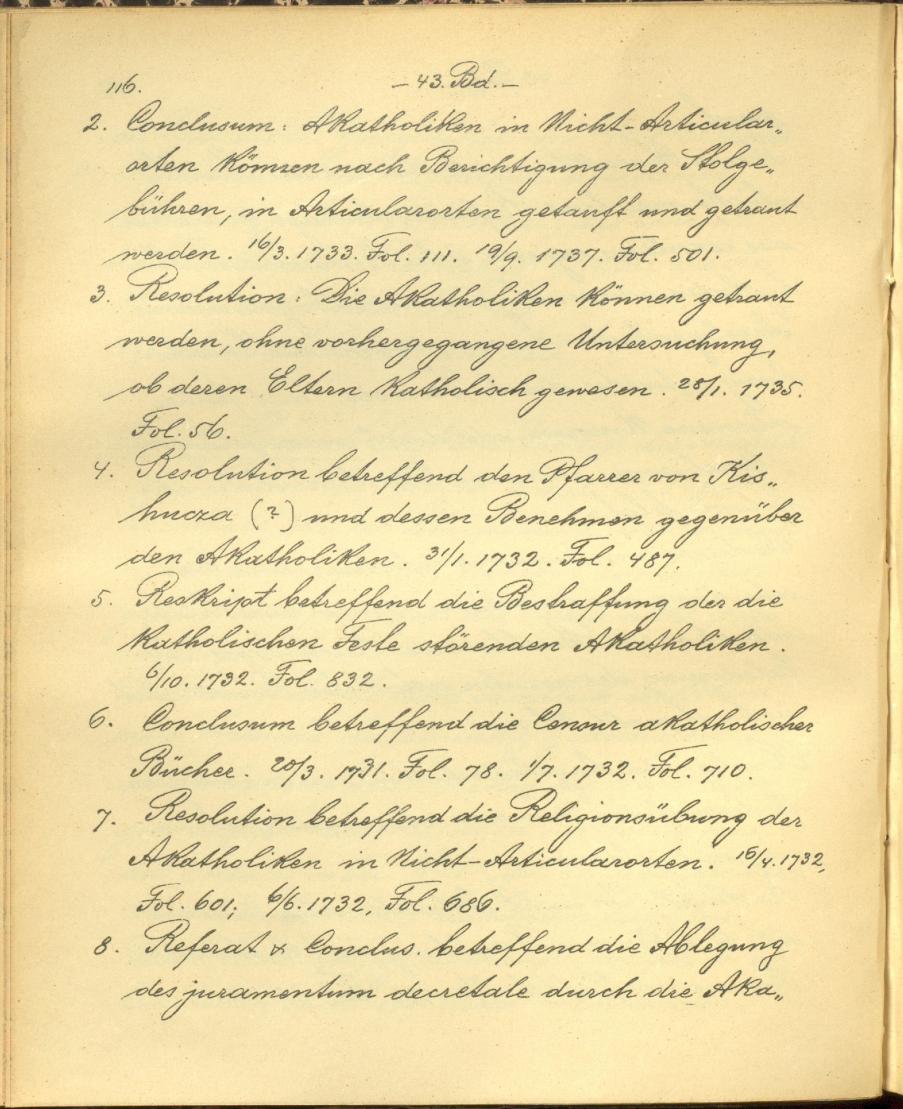 116.
– 43. Bd. –
2. Conclusum: Akatholiken in Nicht-Articular„
orten können nach Berichtigung der Stolge„
bühren, in Articularorten getauft und getraut
werden. 16/3. 1733. Fol. 111. 19/9. 1737. Fol. 501.
3. Resolution: Die Akatholiken können getraut
werden, ohne vorhergegangene Untersuchung,
ob deren Eltern katholisch gewesen. 28/1. 1735.
Fol. 56.
4. Resolution betreffend den Pfarrer von Kis„
hucza (?) und dessen Benehmen gegenüber
den Akatholiken. 31/1. 1732. Fol. 487.
5. Reskript betreffend die Bestraffung der die
katholischen Feste störenden Akatholiken.
6/10. 1732. Fol. 832.
6. Conclusum betreffend die Censur akatholischer
Bücher. 20/3. 1731. Fol. 78. 1/7. 1732. Fol. 710.
7. Resolution betreffend die Religionsübung der
Akatholiken in Nicht-Articularorten. 16/4. 1732,
Fol. 601; 6/6. 1732, Fol. 686.
8. Referat & Conclus. betreffend die Ablegung
des juramentum decretale durch die Aka„